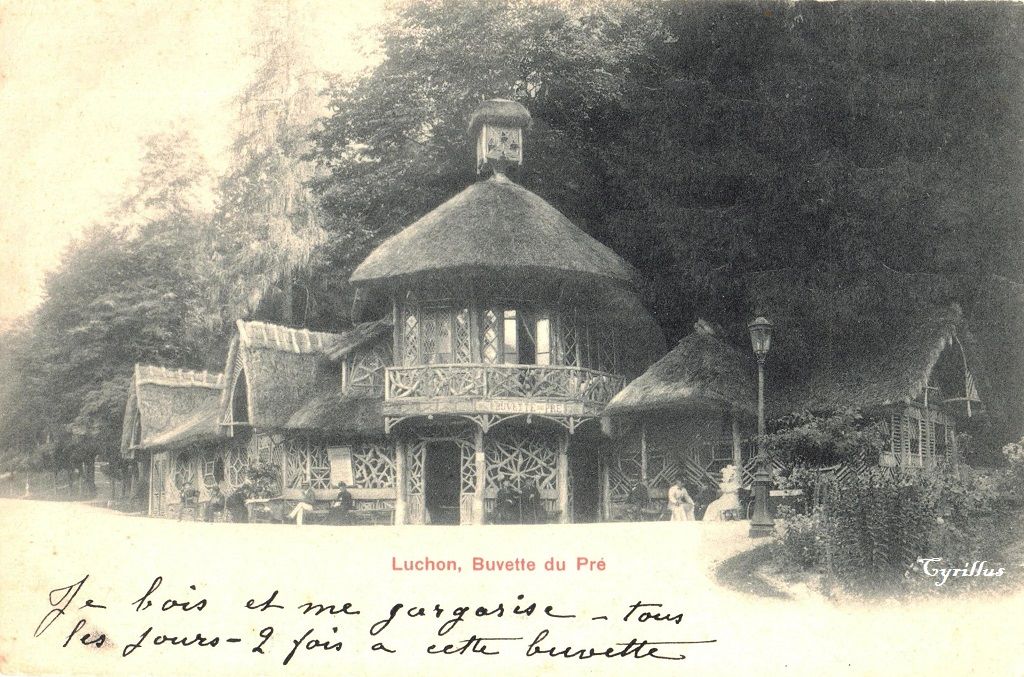 BUVETTE DU PRÉ
Luchon, Buvette du Pré
Cyrillus
Je bois et me gargarise - tous
les jours - 2 fois a cette buvette